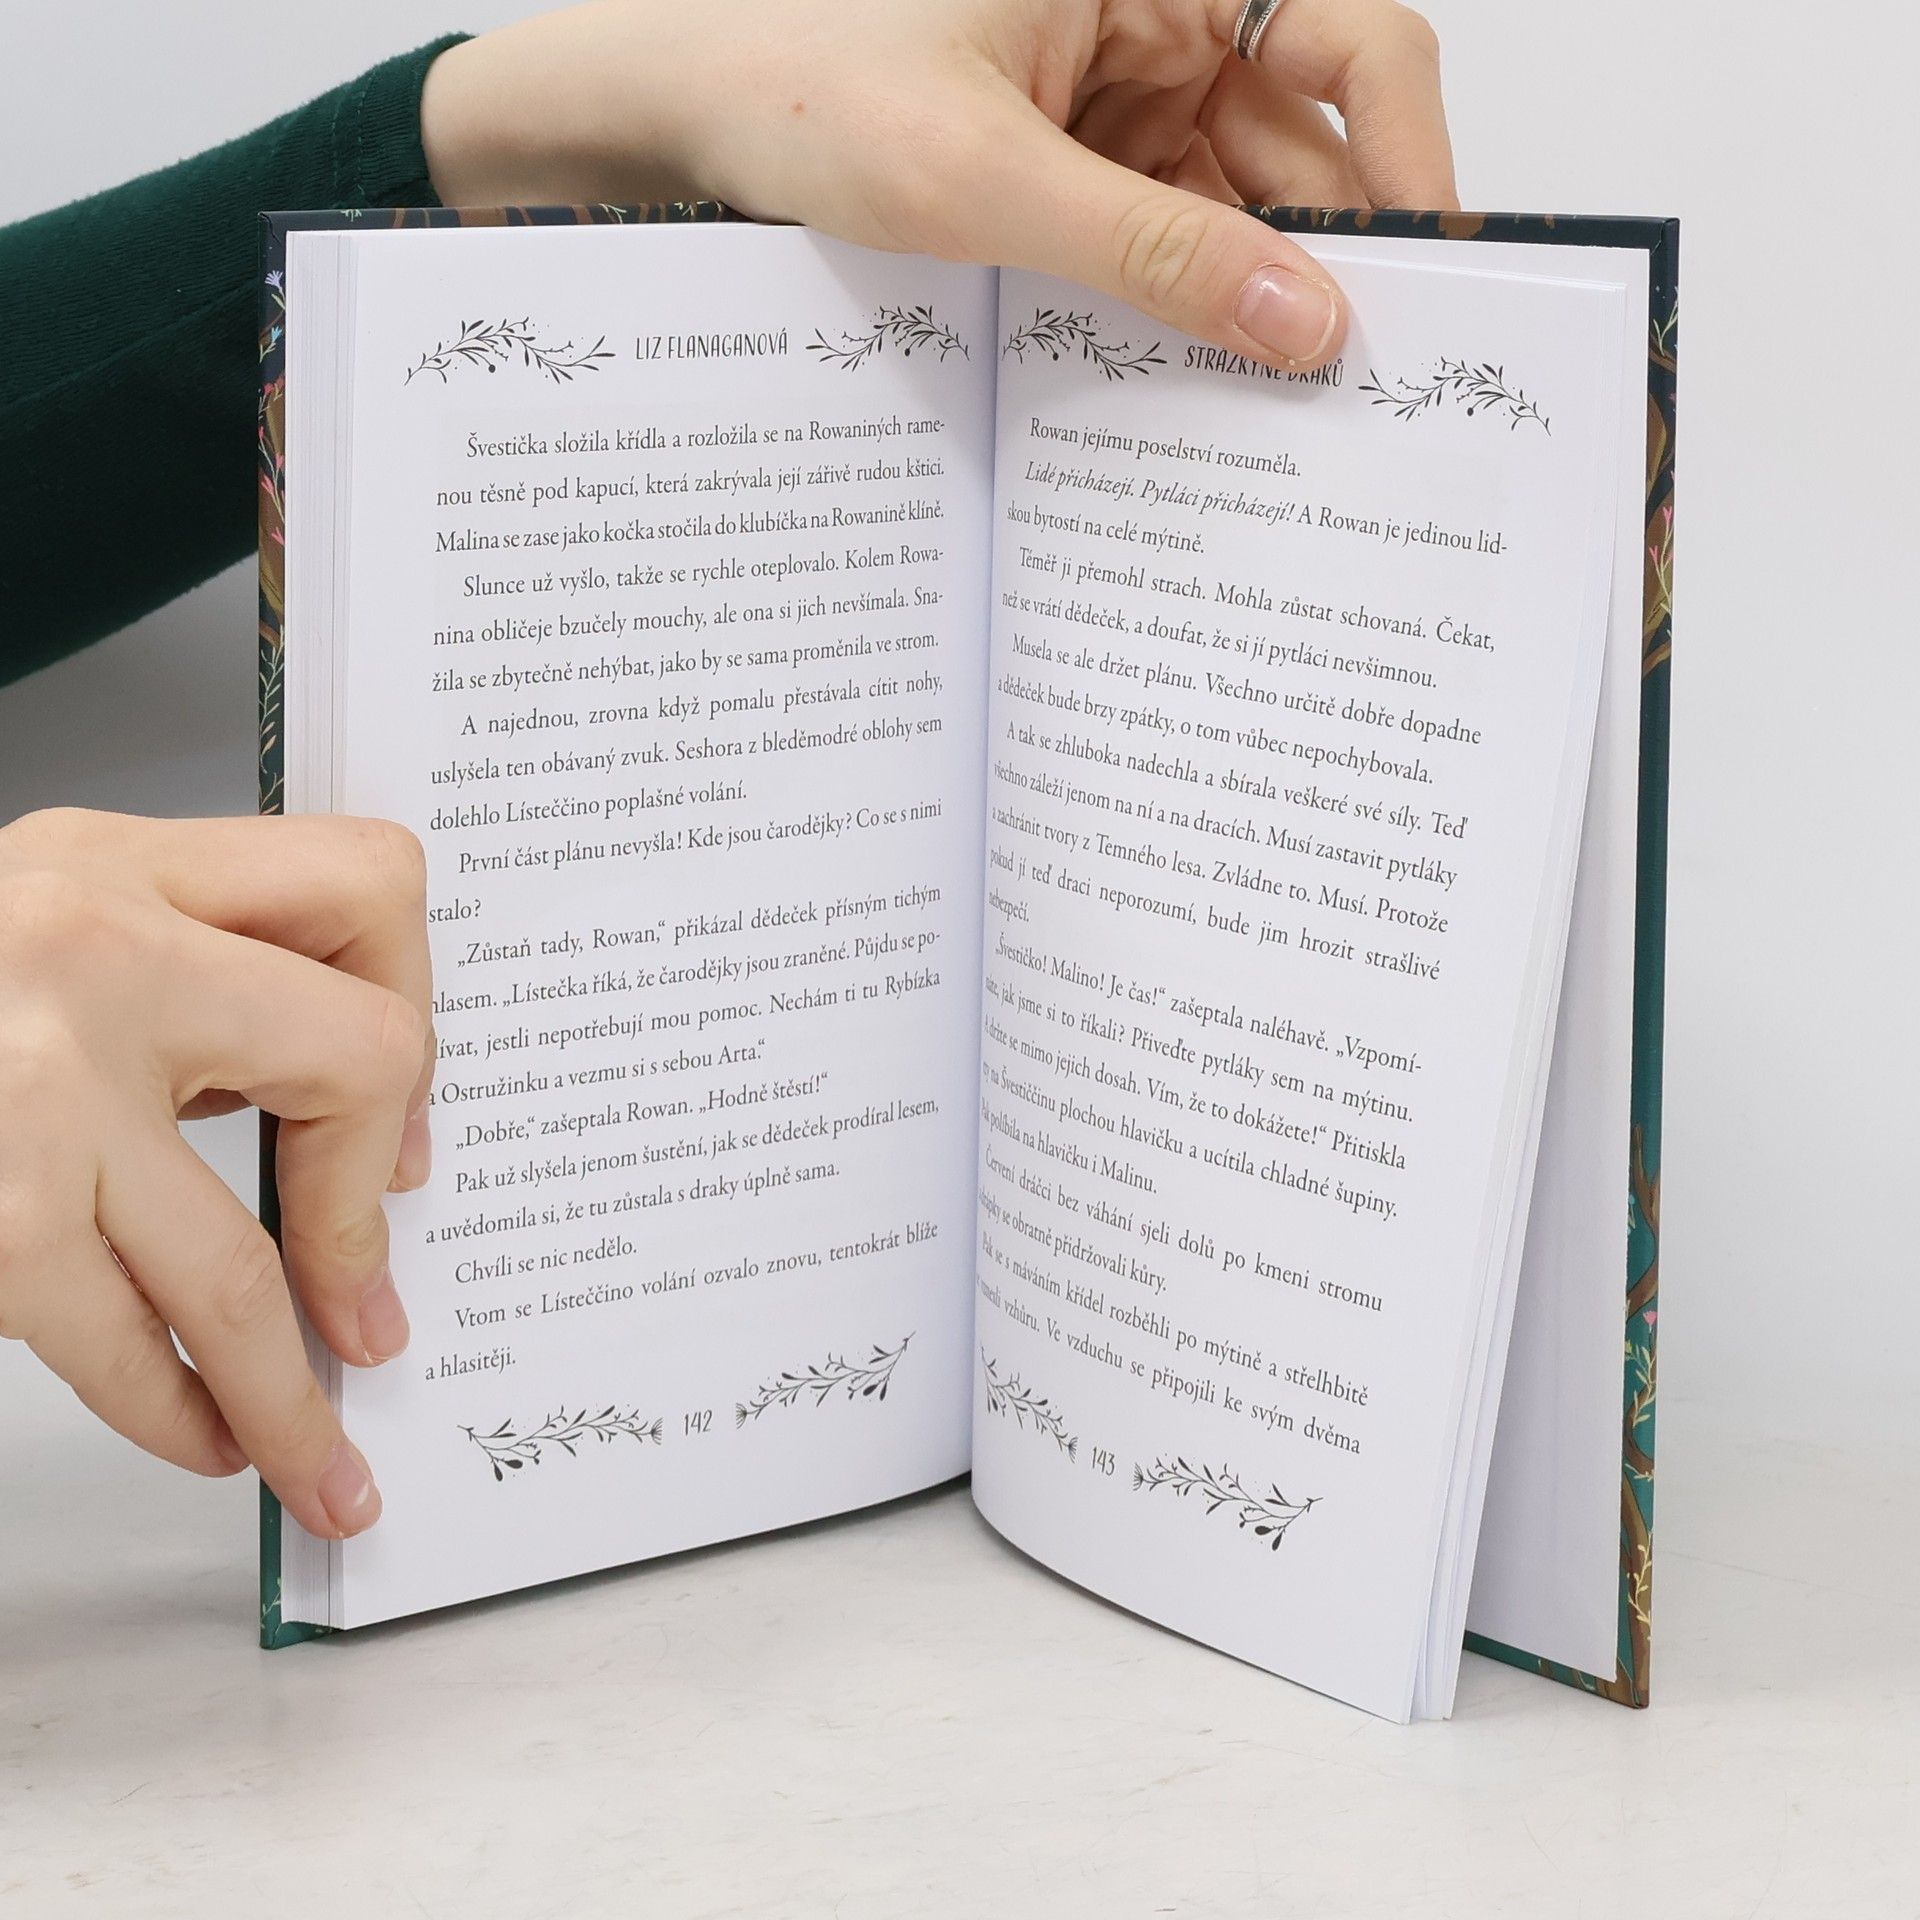 LIZ FLANAGANOVÁ
Švestička složila křídla a rozložila se na Rowaniných rame-
nou těsně pod kapucí, která zakrývala její zářivě rudou kštici.
Malina se zase jako kočka stočila do klubíčka na Rowanině klíně.
Slunce už vyšlo, takže se rychle oteplovalo. Kolem Rowa-
nina obličeje bzučely mouchy, ale ona si jich nevšímala. Sna-
žila se zbytečně nehýbat, jako by se sama proměnila ve strom.
A najednou, zrovna když pomalu přestávala cítit nohy,
uslyšela ten obávaný zvuk. Seshora z bleděmodré oblohy sem
dolehlo Lísteččino poplašné volání.
První část plánu nevyšla! Kde jsou čarodějky? Co se s nimi
stalo?
„Zůstaň tady, Rowan,“ přikázal dědeček přísným tichým
hlasem. „Lístečka říká, že čarodějky jsou zraněné. Půjdu se po-
dívat, jestli nepotřebují mou pomoc. Nechám ti tu Rybízka
a Ostružinku a vezmu si s sebou Arta.“
„Dobře,“ zašeptala Rowan. „Hodně štěstí!“
Pak už slyšela jenom šustění, jak se dědeček prodíral lesem,
a uvědomila si, že tu zůstala s draky úplně sama.
Chvíli se nic nedělo.
Vtom se Lísteččino volání ozvalo znovu, tentokrát blíže
a hlasitěji.
142
STRÁŽKYNĚ DRAKŮ
Rowan jejímu poselství rozuměla.
Lidé přicházejí. Pytláci přicházejí! A Rowan je jedinou lid-
skou bytostí na celé mýtině.
Téměř ji přemohl strach. Mohla zůstat schovaná. Čekat,
než se vrátí dědeček, a doufat, že si jí pytláci nevšimnou.
Musela se ale držet plánu. Všechno určitě dobře dopadne
a dědeček bude brzy zpátky, o tom vůbec nepochybovala.
A tak se zhluboka nadechla a sbírala veškeré své síly. Teď
všechno záleží jenom na ní a na dracích. Musí zastavit pytláky
a zachránit tvory z Temného lesa. Zvládne to. Musí. Protože
pokud jí teď draci neporozumí, bude jim hrozit strašlivé
nebezpečí.
„Švestičko! Malino! Je čas!“ zašeptala naléhavě. „Vzpomí-
náte, jak jsme si to říkali? Přiveďte pytláky sem na mýtinu.
A držte se mimo jejich dosah. Vím, že to dokážete!“ Přitiskla
rty na Švestiččinu plochou hlavičku a ucítila chladné šupiny.
Pak políbila na hlavičku i Malinu.
Červení dráčci bez váhání sjeli dolů po kmeni stromu
a drápky se obratně přidržovali kůry.
Pak se s máváním křídel rozběhli po mýtině a střelhbitě
vzhůru. Ve vzduchu se připojili ke svým dvěma
143